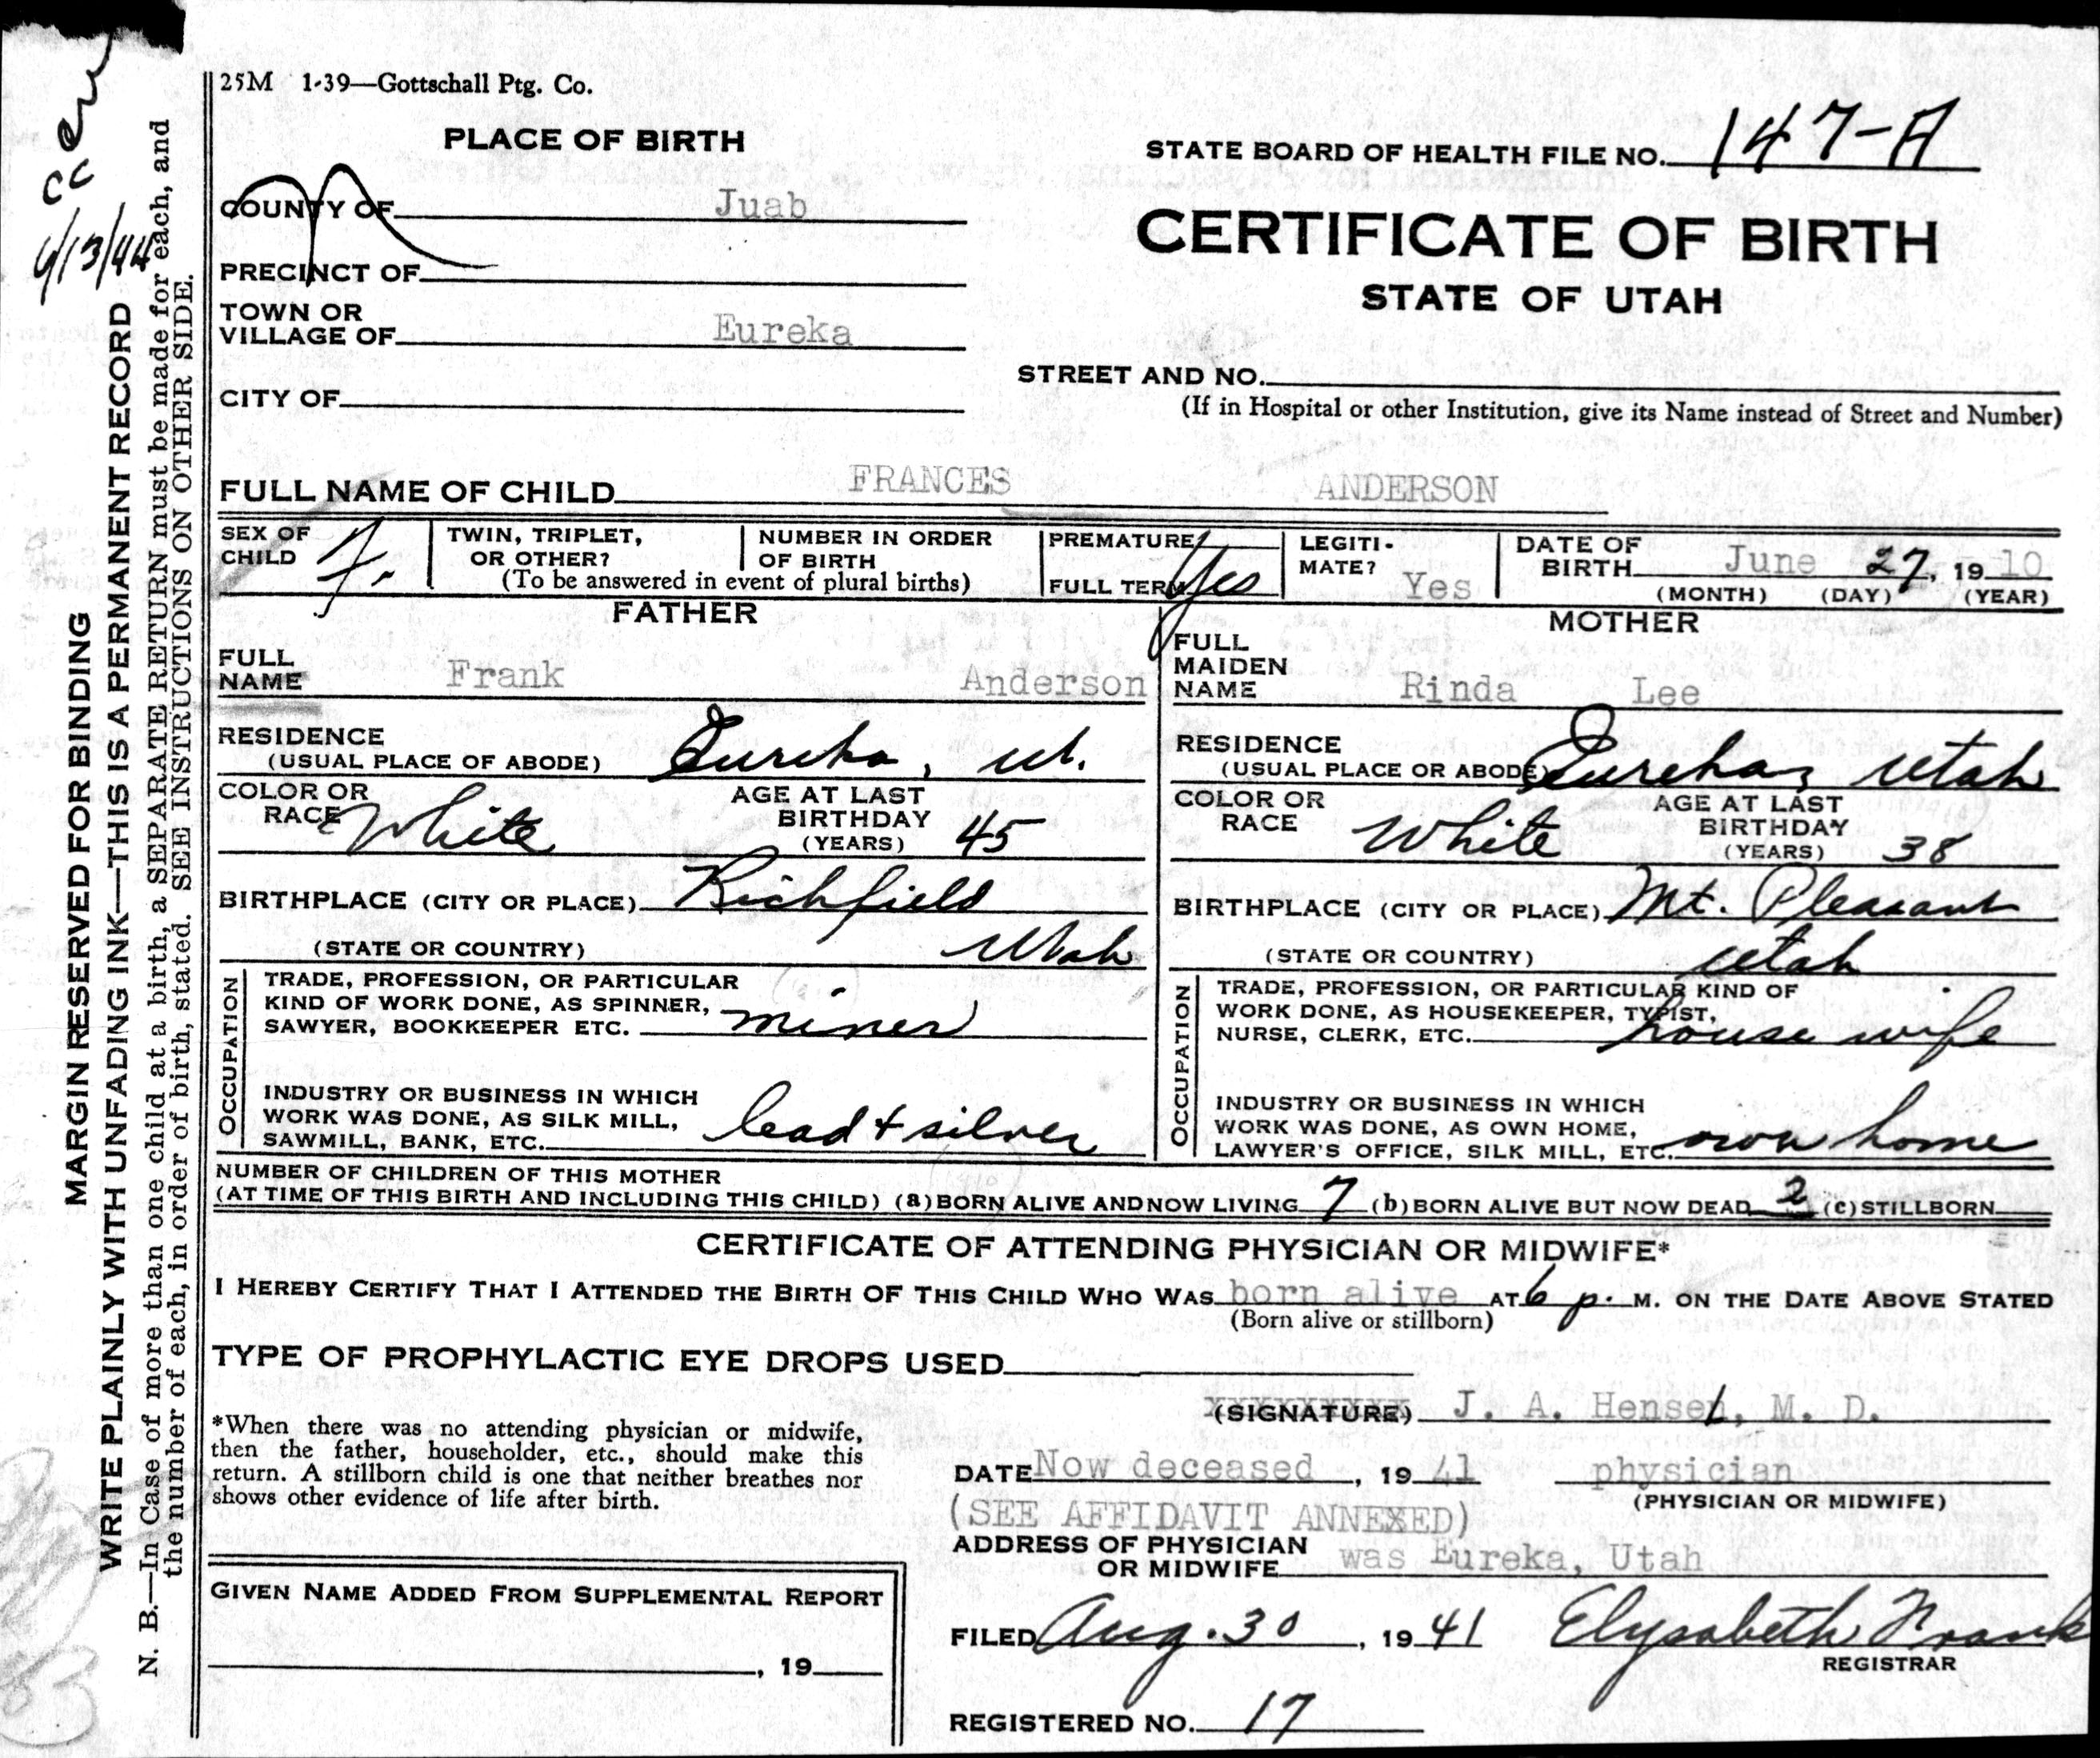 25M 1-39—Gottschall Ptg. Co.
PLACE OF BIRTH
STATE BOARD OF HEALTH FILE NO. 147-A
COUNTY OF Juab
CERTIFICATE OF BIRTH
PRECINCT OF
STATE OF UTAH
TOWN OR
VILLAGE OF Eureka
STREET AND NO.
CITY OF
(If in Hospital or other Institution, give its Name instead of Street and Number)
FULL NAME OF CHILD FRANCES ANDERSON
SEX OF
CHILD F.
TWIN, TRIPLET,
OR OTHER?
NUMBER IN ORDER
OF BIRTH
(To be answered in event of plural births)
PREMATURE
FULL TERM Yes
LEGITI-
MATE? Yes
DATE OF
BIRTH June 27, 1910
(MONTH) (DAY) (YEAR)
FATHER
FULL
NAME Frank Anderson
RESIDENCE
(USUAL PLACE OF ABODE) Eureka, Ut.
COLOR OR
RACE White
AGE AT LAST
BIRTHDAY
(YEARS) 45
BIRTHPLACE (CITY OR PLACE) Richfield
(STATE OR COUNTRY) Utah
OCCUPATION
TRADE, PROFESSION, OR PARTICULAR
KIND OF WORK DONE, AS SPINNER,
SAWYER, BOOKKEEPER ETC. miner
INDUSTRY OR BUSINESS IN WHICH
WORK WAS DONE, AS SILK MILL,
SAWMILL, BANK, ETC. lead + silver
MOTHER
FULL
MAIDEN
NAME Rinda Lee
RESIDENCE
(USUAL PLACE OR ABODE) Eureka, Utah
COLOR OR
RACE White
AGE AT LAST
BIRTHDAY
(YEARS) 38
BIRTHPLACE (CITY OR PLACE) Mt. Pleasant
(STATE OR COUNTRY) Utah
OCCUPATION
TRADE, PROFESSION, OR PARTICULAR KIND OF
WORK DONE, AS HOUSEKEEPER, TYPIST,
NURSE, CLERK, ETC. house wife
INDUSTRY OR BUSINESS IN WHICH
WORK WAS DONE, AS OWN HOME,
LAWYER'S OFFICE, SILK MILL, ETC. own home
NUMBER OF CHILDREN OF THIS MOTHER
(AT TIME OF THIS BIRTH AND INCLUDING THIS CHILD) (a) BORN ALIVE AND NOW LIVING 7 (b) BORN ALIVE BUT NOW DEAD 2 (c) STILLBORN
CERTIFICATE OF ATTENDING PHYSICIAN OR MIDWIFE*
I HEREBY CERTIFY THAT I ATTENDED THE BIRTH OF THIS CHILD WHO WAS born alive AT 6 p. M. ON THE DATE ABOVE STATED
(Born alive or stillborn)
TYPE OF PROPHYLACTIC EYE DROPS USED
*When there was no attending physician or midwife,
then the father, householder, etc., should make this
return. A stillborn child is one that neither breathes nor
shows other evidence of life after birth.
(SIGNATURE) J. A. Hensel, M. D.
DATE Now deceased, 1941 physician
(PHYSICIAN OR MIDWIFE)
(SEE AFFIDAVIT ANNEXED)
ADDRESS OF PHYSICIAN
OR MIDWIFE was Eureka, Utah
GIVEN NAME ADDED FROM SUPPLEMENTAL REPORT
, 19
FILED Aug. 30, 1941 Elysabeth Frank
REGISTRAR
REGISTERED NO. 17
MARGIN RESERVED FOR BINDING
WRITE PLAINLY WITH UNFADING INK—THIS IS A PERMANENT RECORD
N. B.—In Case of more than one child at a birth, a SEPARATE RETURN must be made for each, and
the number of each, in order of birth, stated. SEE INSTRUCTIONS ON OTHER SIDE.
cc
6/13/44